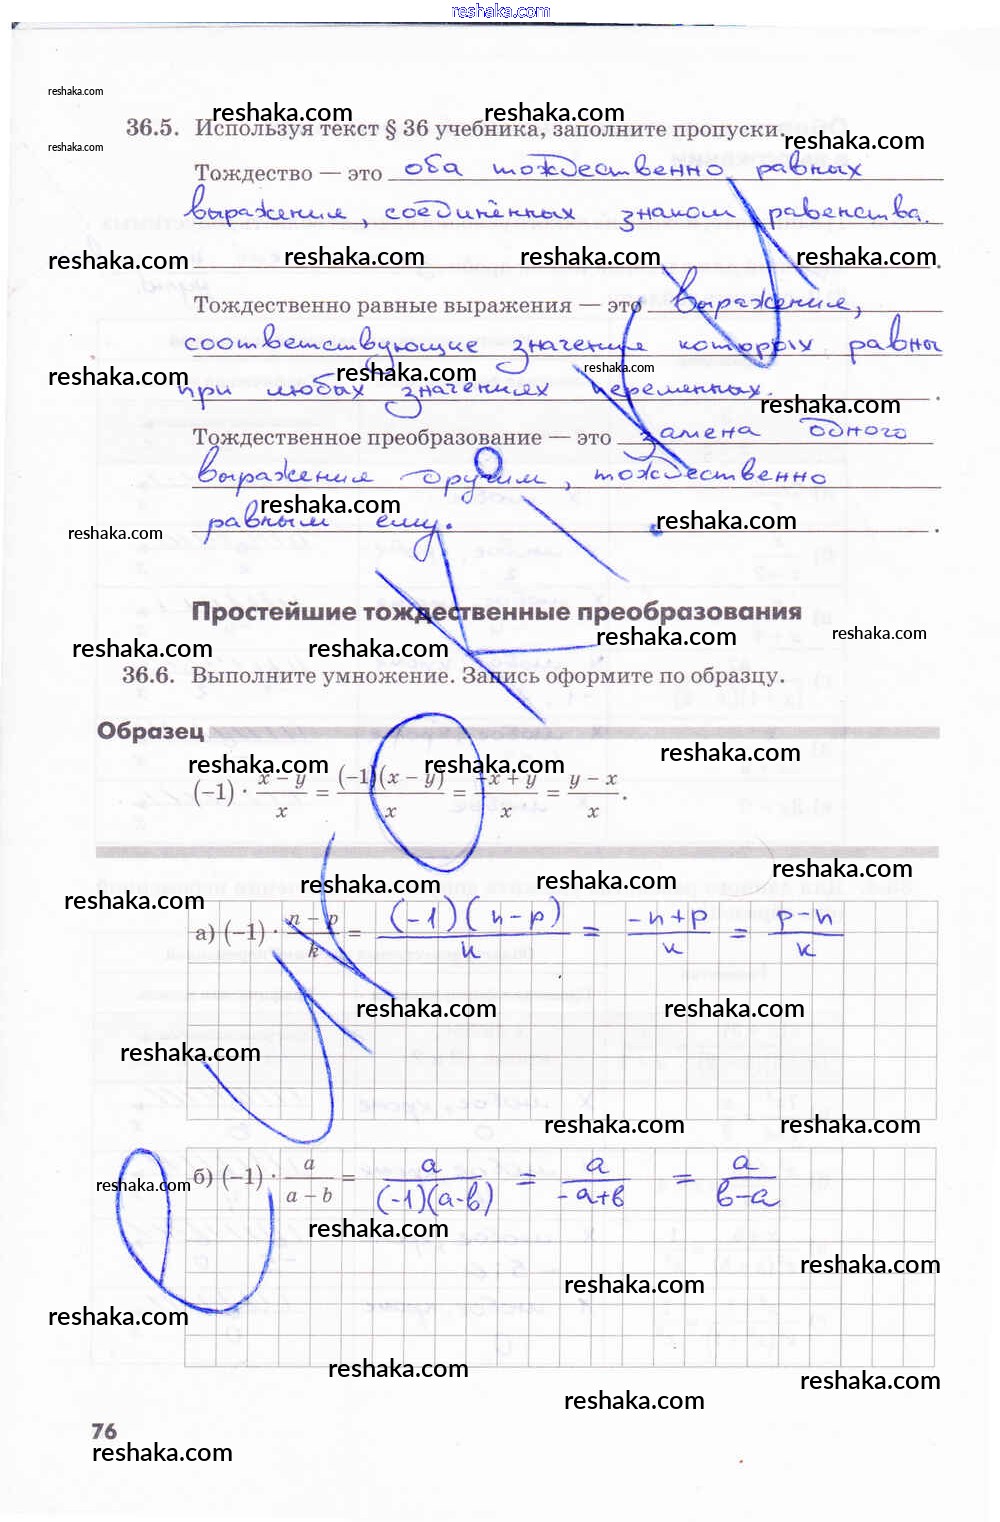 reshaka.com
reshaka.com
reshaka.com reshaka.com
36.5. Используя текст § 36 учебника, заполните пропуски.
reshaka.com reshaka.com
Тождество — это оба тождественно равных
выражения, соединённых знаком равенства.
reshaka.com reshaka.com reshaka.com reshaka.com
Тождественно равные выражения — это выражения,
соответствующие значения которых равны
reshaka.com reshaka.com reshaka.com
при любых значениях переменных.
reshaka.com
Тождественное преобразование — это замена одного
выражения другим, тождественно
reshaka.com
равным ему.
reshaka.com reshaka.com
Простейшие тождественные преобразования
reshaka.com reshaka.com reshaka.com reshaka.com
36.6. Выполните умножение. Запись оформите по образцу.
Образец
reshaka.com reshaka.com reshaka.com
(−1) · (x − y)/x = (−1)(x − y)/x = (−x + y)/x = (y − x)/x.
reshaka.com reshaka.com reshaka.com reshaka.com
а) (−1) · (n − p)/k = (−1)(n−p)/k = (−n+p)/k = (p−n)/k
reshaka.com reshaka.com
reshaka.com
reshaka.com reshaka.com
б) (−1) · a/(a − b) = a/((−1)(a−b)) = a/(−a+b) = a/(b−a)
reshaka.com
reshaka.com
reshaka.com reshaka.com
reshaka.com
reshaka.com reshaka.com reshaka.com
76
reshaka.com